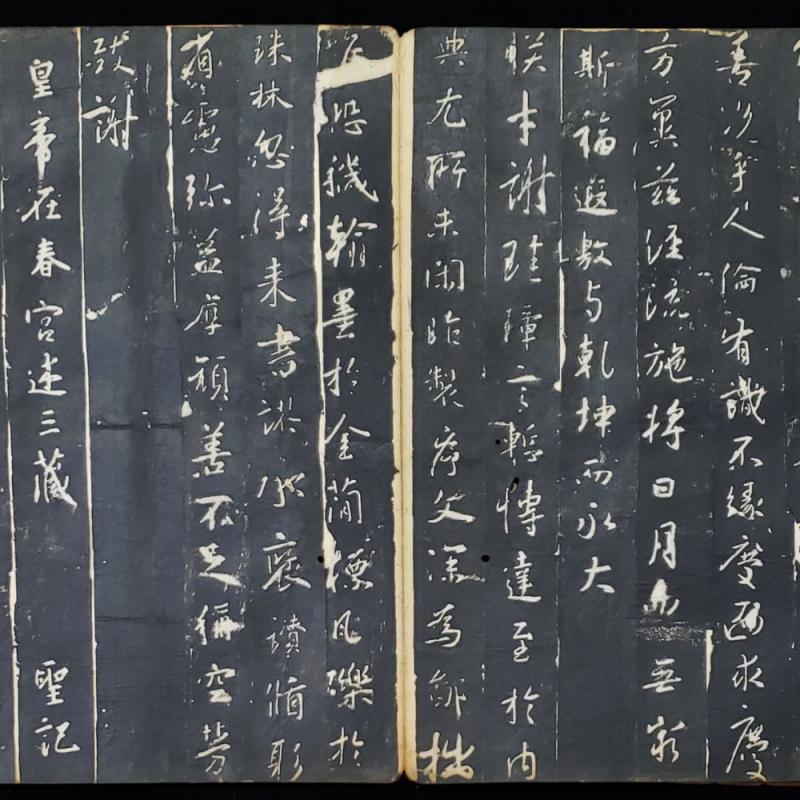 善次乎人倫有識不緣慶而求慶
方冀茲經流施將日月而無窮
斯福遐敷與乾坤而永大
朕才謝珪璋言慚博達至於內
典尤所未閑昨製序文深為鄙拙
唯恐穢翰墨於金簡標瓦礫於
珠林忽得來書謬承褒讚循躬
省慮彌益厚顏善不足稱空勞
致謝
皇帝在春宮述三藏 聖記